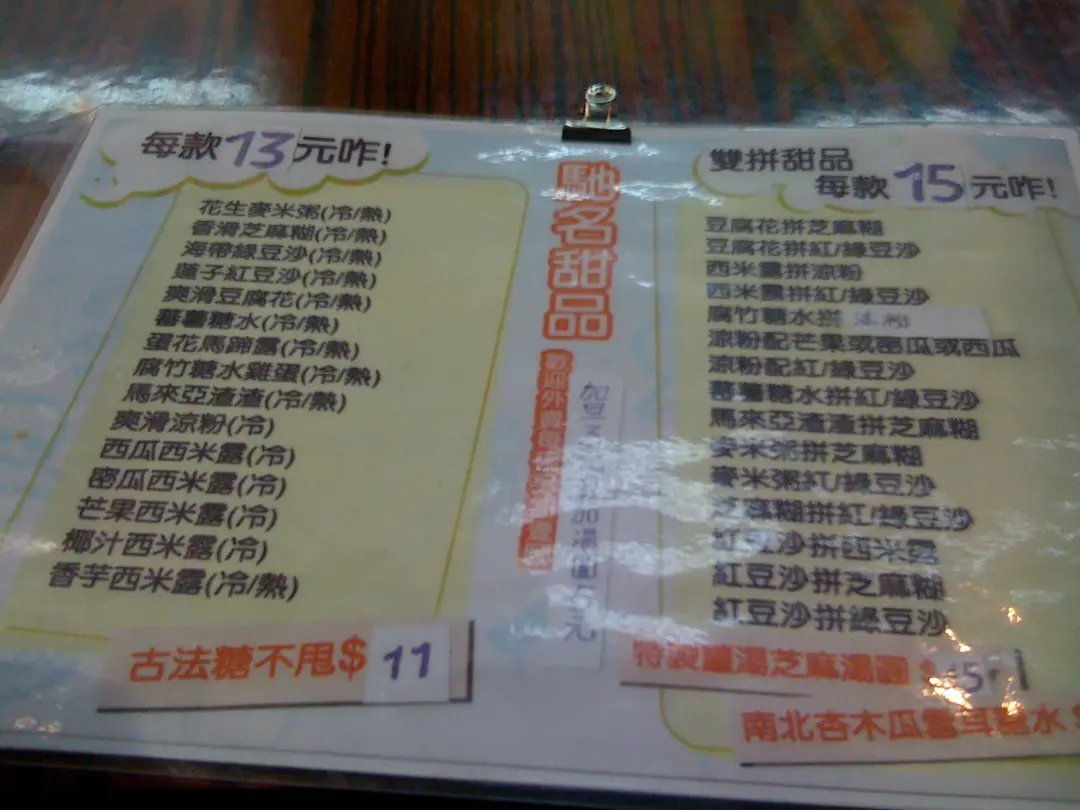 每款13元咋!
花生麥米粥(冷/熱)
香滑芝麻糊(冷/熱)
海帶綠豆沙(冷/熱)
蓮子紅豆沙(冷/熱)
爽滑豆腐花(冷/熱)
蕃薯糖水(冷/熱)
蛋花馬蹄露(冷/熱)
腐竹糖水雞蛋(冷/熱)
馬來亞渣渣(冷/熱)
爽滑涼粉(冷)
西瓜西米露(冷)
密瓜西米露(冷)
芒果西米露(冷)
椰汁西米露(冷)
香芋西米露(冷/熱)
古法糖不甩$11
馳名甜品
歡迎外賣
加豆
加湯圓5元
雙拼甜品
每款15元咋!
豆腐花拼芝麻糊
豆腐花拼紅/綠豆沙
西米露拼涼粉
西米露拼紅/綠豆沙
腐竹糖水拼
涼粉配芒果或密瓜或西瓜
涼粉配紅/綠豆沙
蕃薯糖水拼紅/綠豆沙
馬來亞渣渣拼芝麻糊
麥米粥拼芝麻糊
麥米粥紅/綠豆沙
芝麻糊拼紅/綠豆沙
紅豆沙拼西米露
紅豆沙拼芝麻糊
紅豆沙拼綠豆沙
特製薑湯芝麻湯圓 $15
南北杏木瓜雪耳糖水 $